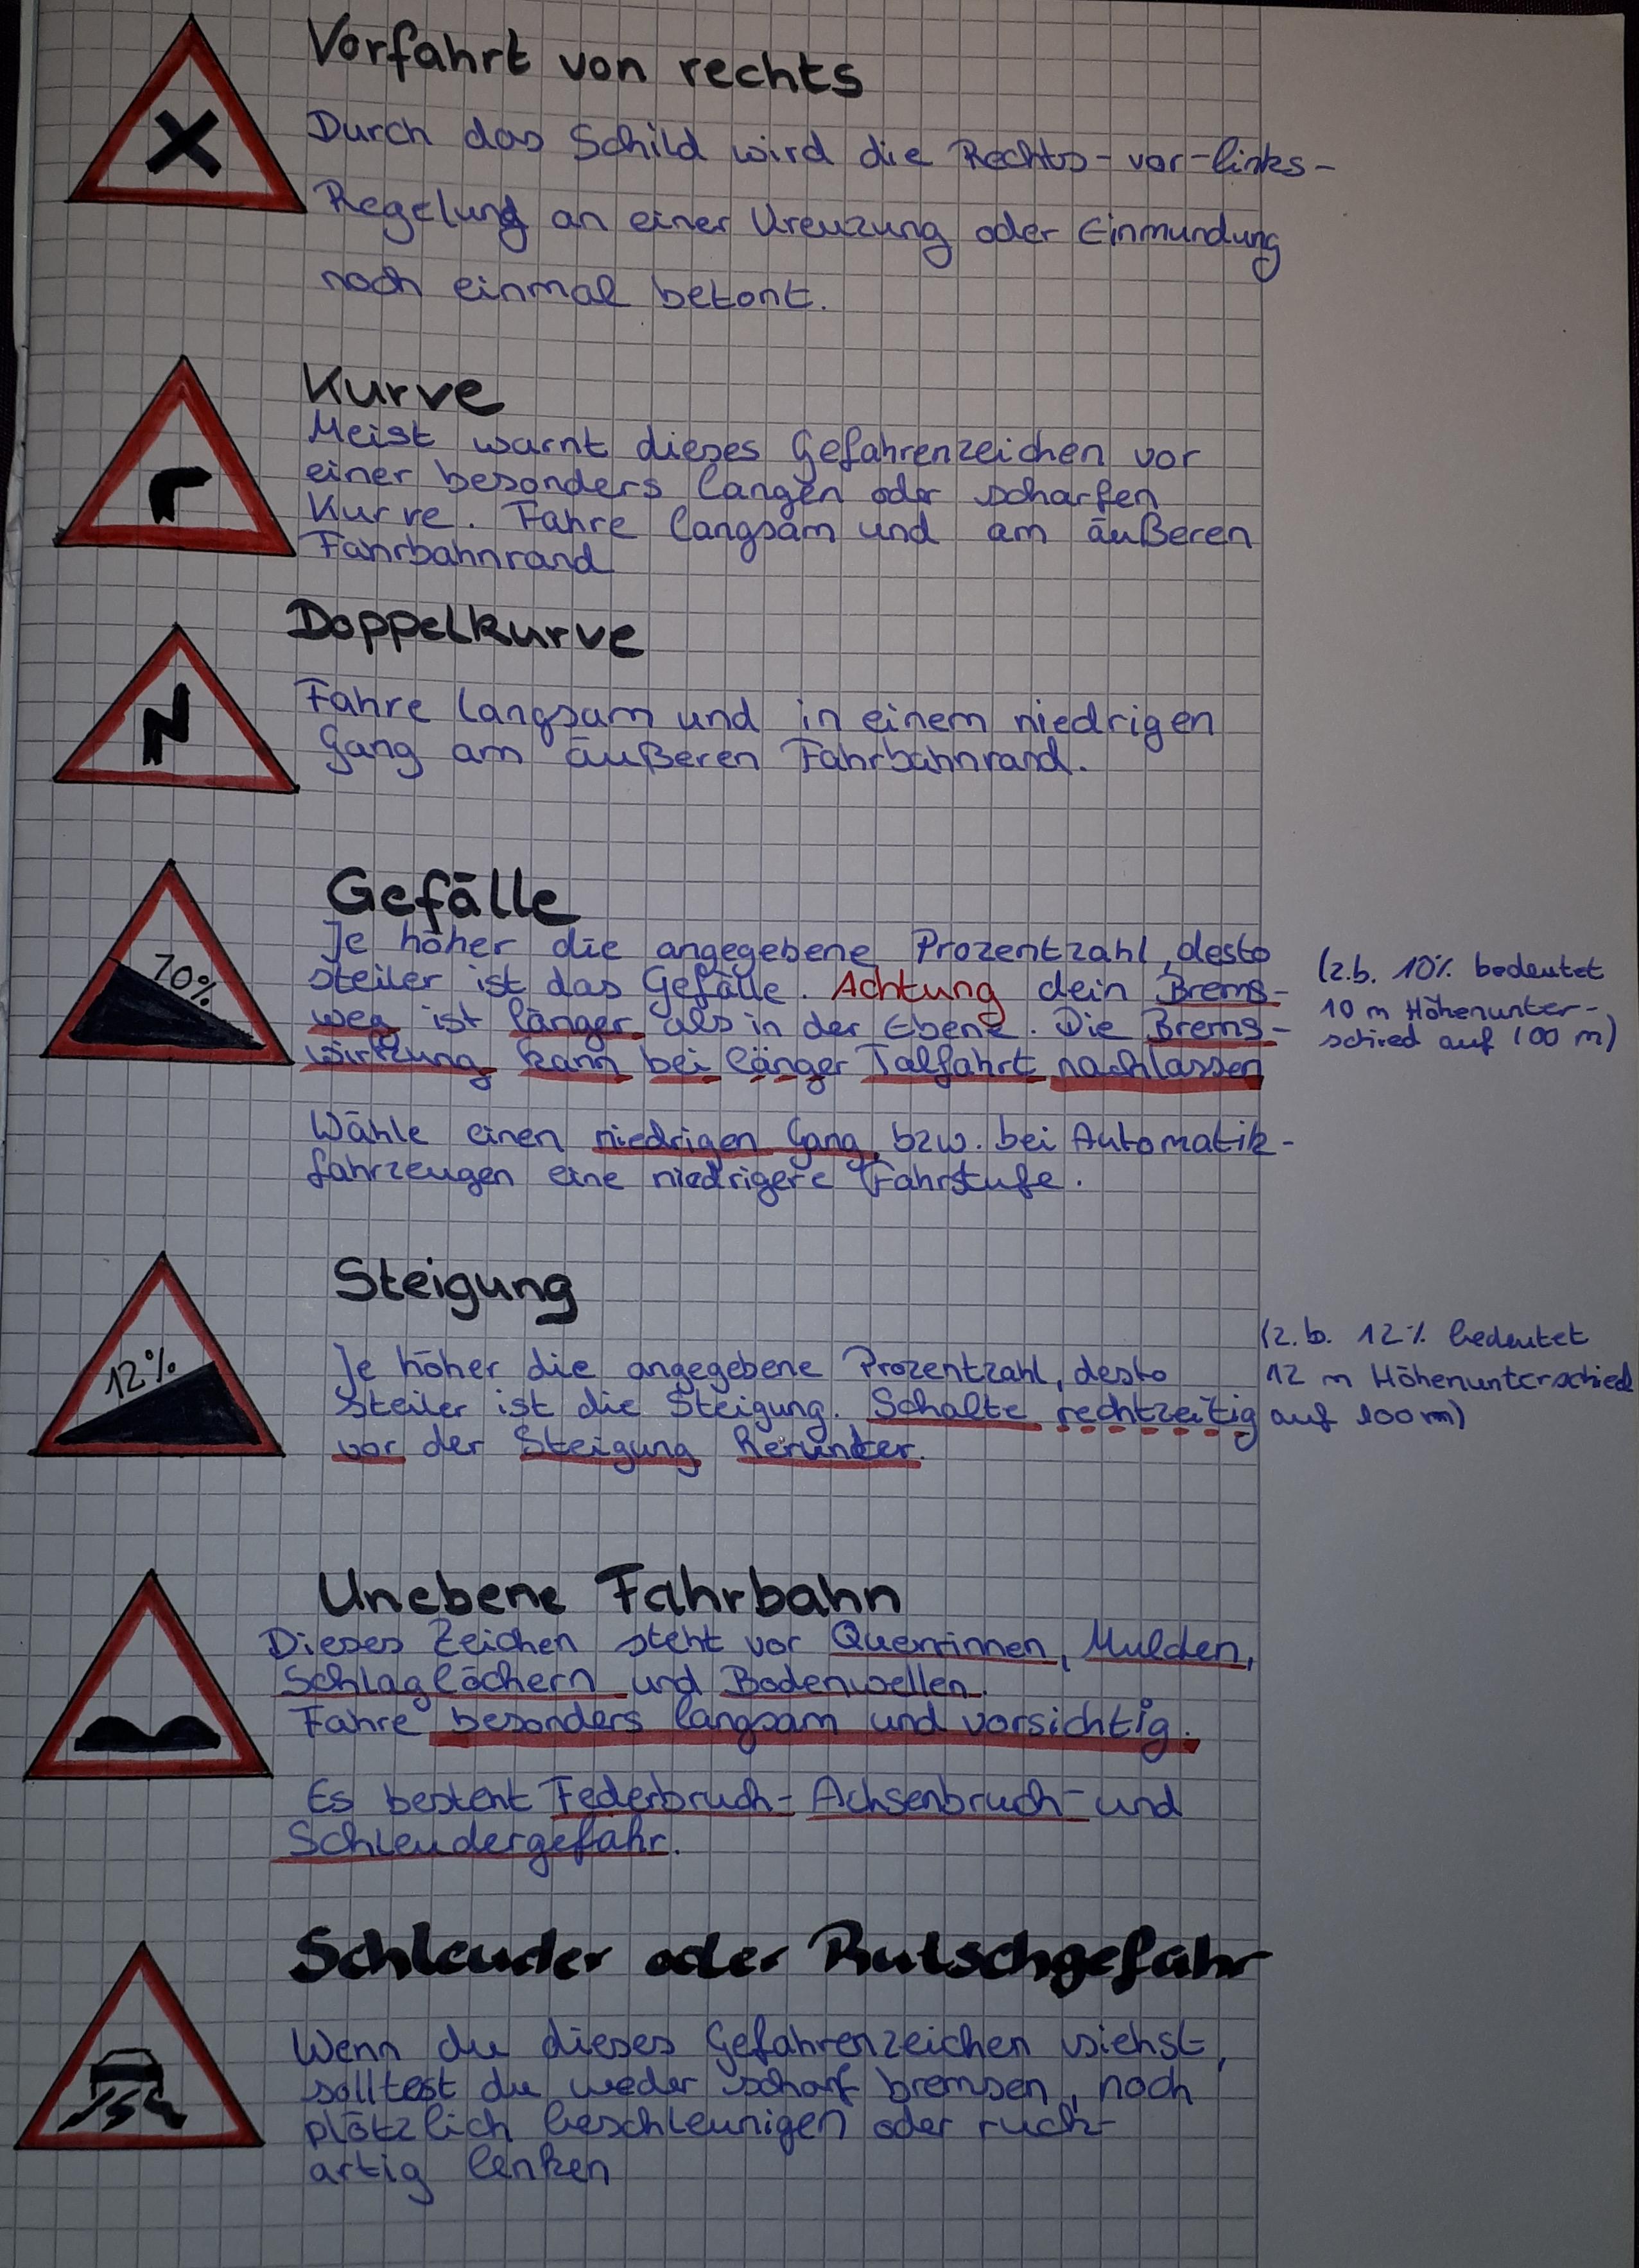 Vorfahrt von rechts
Durch das Schild wird die Rechts-vor-links-
Regelung an einer Kreuzung oder Einmundung
noch einmal betont.
Kurve
Meist warnt dieses Gefahrenzeichen vor
einer besonders langen oder scharfen
Kurve. Fahre langsam und am äußeren
Fahrbahnrand
Doppelkurve
Fahre langsam und in einem niedrigen
Gang am äußeren Fahrbahnrand.
Gefälle
Je höher die angegebene Prozentzahl, desto
10%
steiler ist das Gefälle. Achtung dein Brems-
weg ist länger als in der Ebene. Die Brems-
wirkung kann bei länger Talfahrt nachlassen
(z.b. 10% bedeutet
10 m Höhenunter-
schied auf 100 m)
Wähle einen niedrigen Gang, bzw. bei Automatik-
fahrzeugen eine niedrigere Fahrstufe.
Steigung
12%
Je höher die angegebene Prozentzahl, desto
steiler ist die Steigung. Schalte rechtzeitig
vor der Steigung herunter.
(z.b. 12% bedeutet
12 m Höhenunterschied
auf 100m)
Unebene Fahrbahn
Dieses Zeichen steht vor Querrinnen, Mulden,
Schlaglöchern und Bodenwellen.
Fahre besonders langsam und vorsichtig.
Es besteht Federbruch- Achsenbruch- und
Schleudergefahr.
Schleuder oder Rutschgefahr
Wenn du dieses Gefahrenzeichen siehst,
solltest du weder scharf bremsen, noch
plötzlich beschleunigen oder ruck-
artig lenken